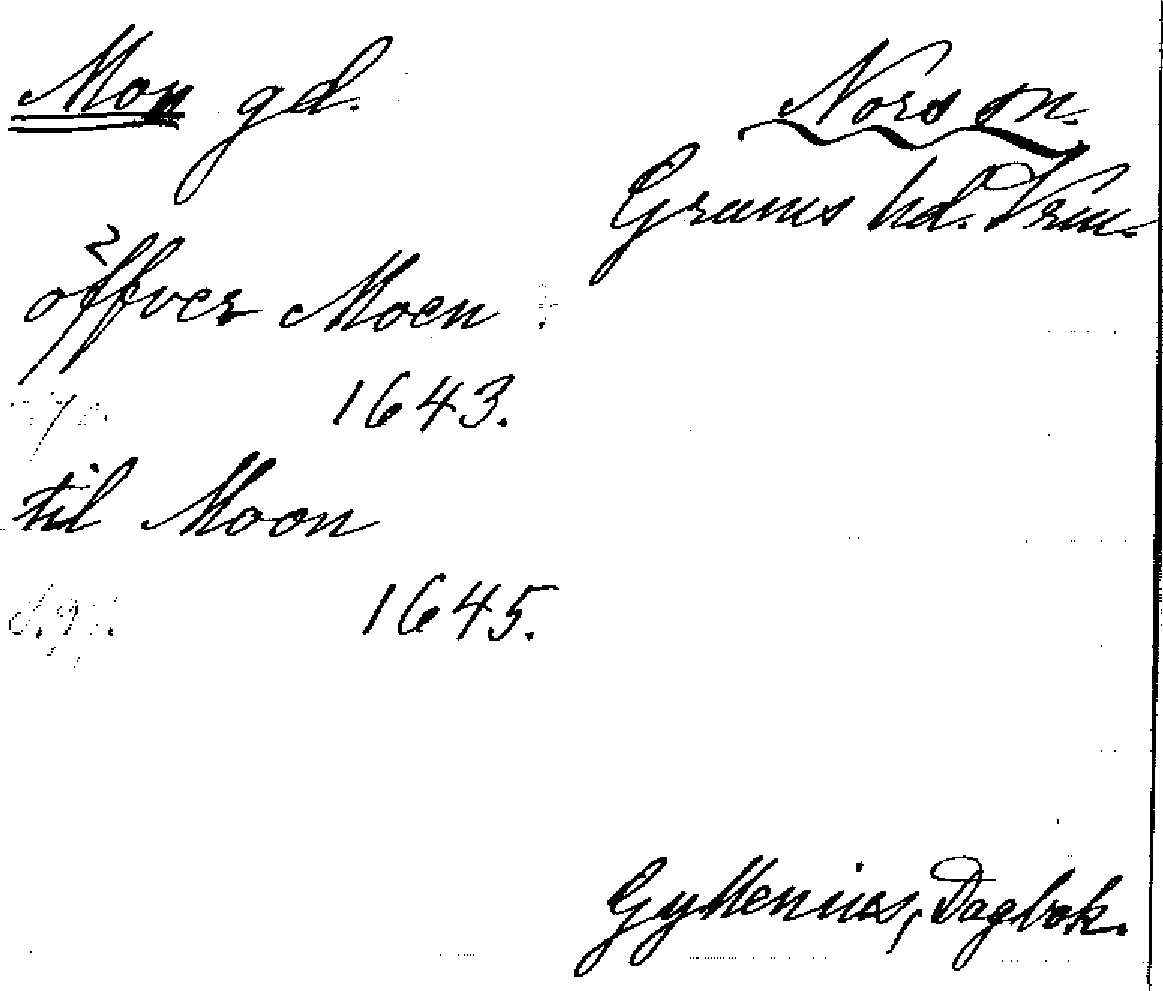 Mon gd.
Nors sn.
Grums hd. Vrm.
öffver Moen
1643.
til Moon
1645.
Gyllenius, Dagbok.